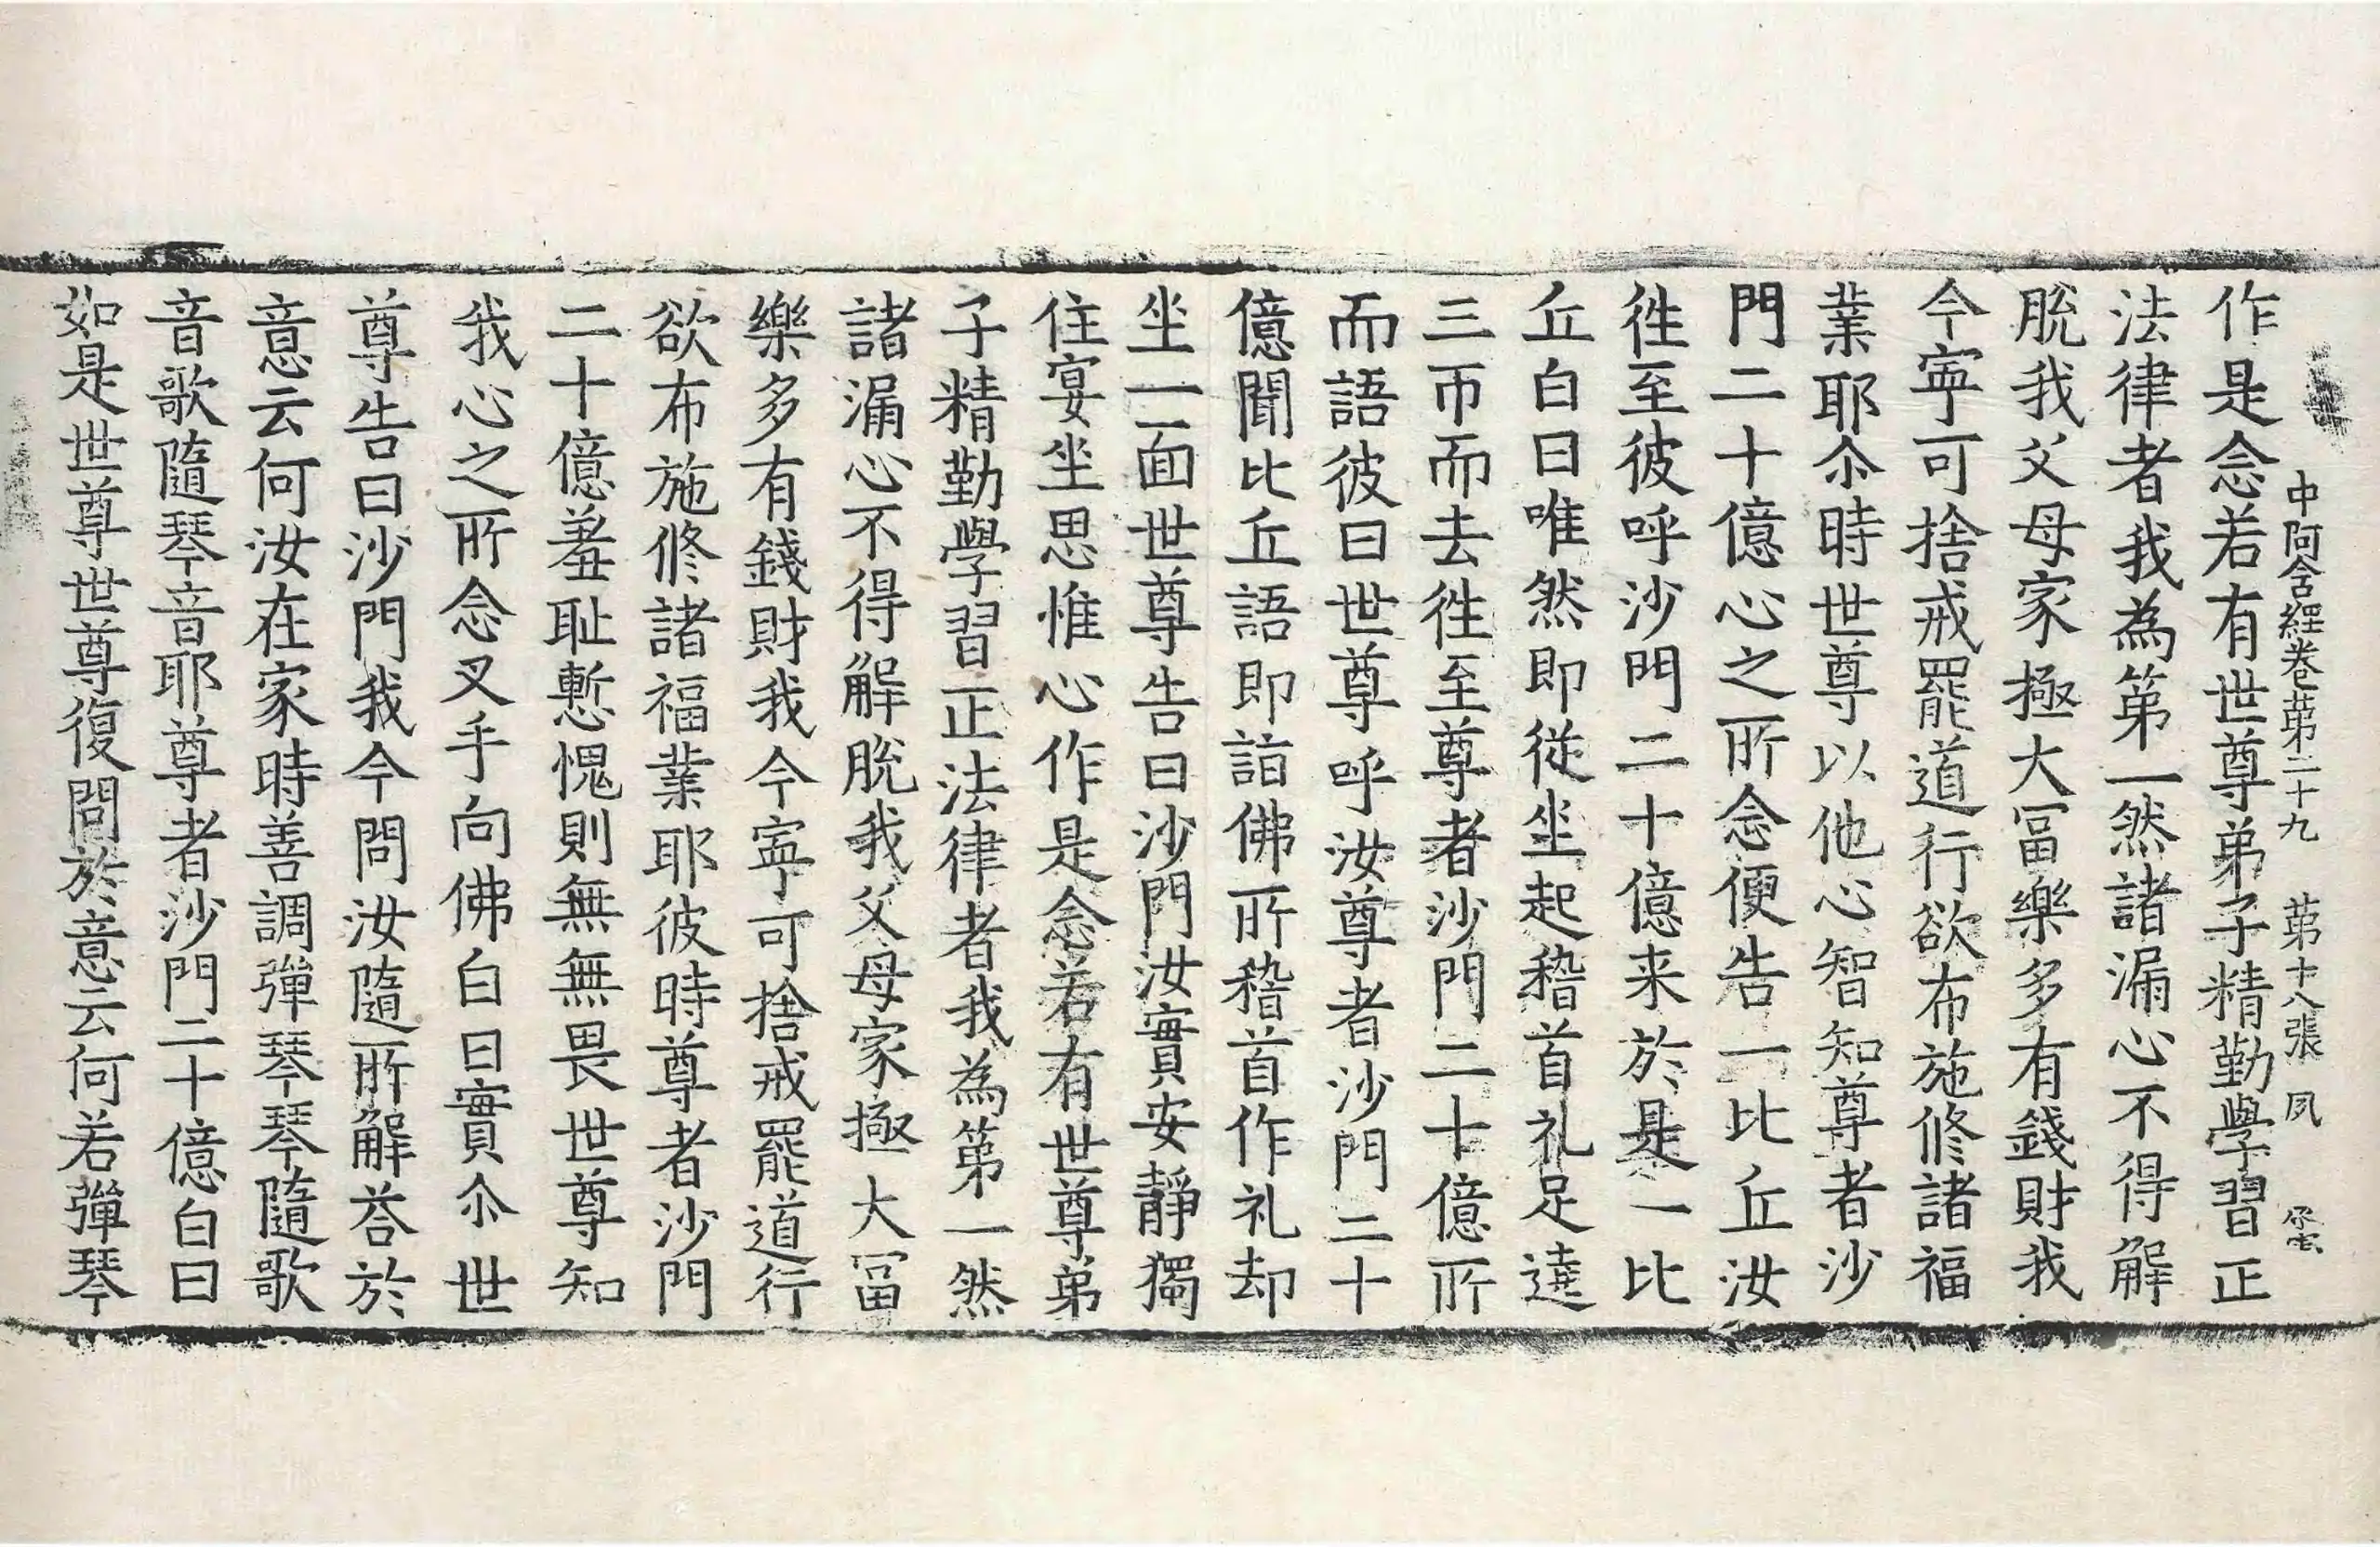 中阿含經卷第二十九 第十八張 夙
作是念若有世尊弟子精勤學習正
法律者我為第一然諸漏心不得解
脫我父母家極大冨樂多有錢財我
今寧可捨戒罷道行欲布施修諸福
業耶尒時世尊以他心智知尊者沙
門二十億心之所念便告一比丘汝
徃至彼呼沙門二十億来於是一比
丘白曰唯然即從坐起稽首礼足遶
三帀而去徃至尊者沙門二十億所
而語彼曰世尊呼汝尊者沙門二十
億聞比丘語即詣佛所稽首作礼却
坐一面世尊告曰沙門汝實安靜獨
住宴坐思惟心作是念若有世尊弟
子精勤學習正法律者我為第一然
諸漏心不得解脫我父母家極大冨
樂多有錢財我今寧可捨戒罷道行
欲布施修諸福業耶彼時尊者沙門
二十億羞恥慙愧則無無畏世尊知
我心之所念叉手向佛白曰實尒世
尊告曰沙門我今問汝隨所解荅於
意云何汝在家時善調彈琴琴隨歌
音歌隨琴音耶尊者沙門二十億白曰
如是世尊世尊復問於意云何若彈琴